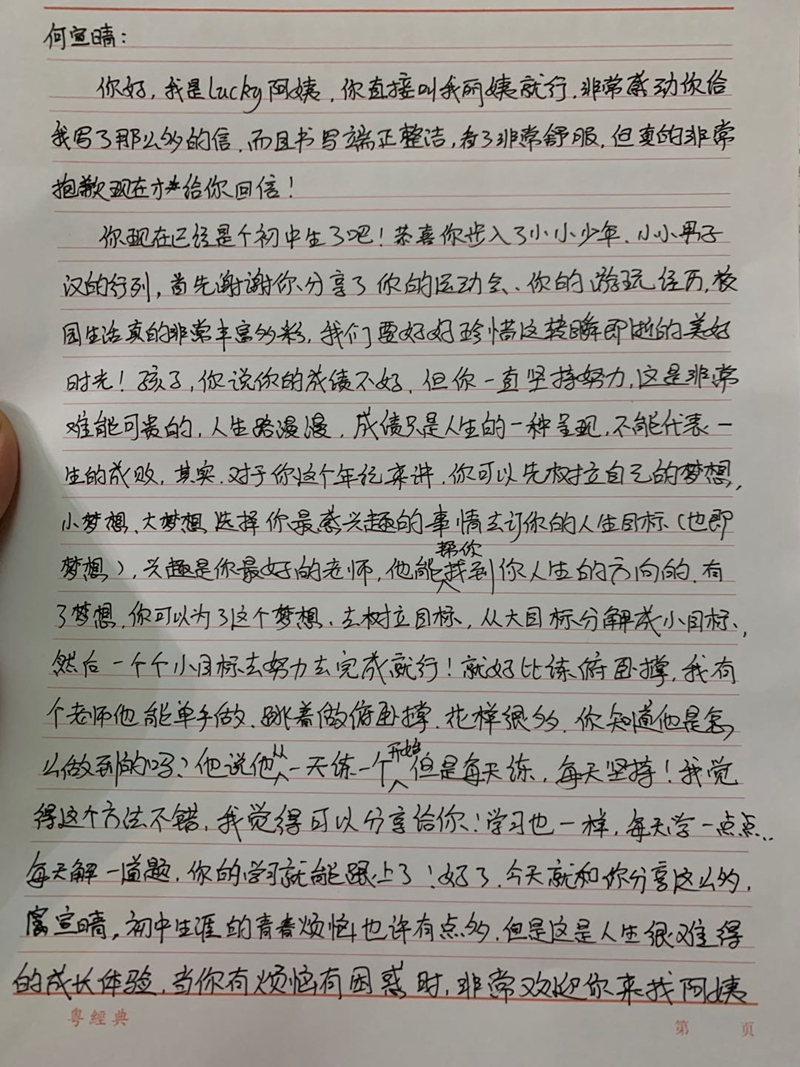 何宣晴：
你好，我是lucky阿姨，你直接叫我丽姨就行．非常感动你给
我写了那么多的信．而且书写端正整洁，看了非常舒服，但真的非常
抱歉现在才给你回信！
你现在已经是个初中生了吧！恭喜你步入了小小少年、小小男子
汉的行列，首先谢谢你分享了你的运动会、你的游玩经历，校
园生活真的非常丰富多彩，我们要好好珍惜这转瞬即逝的美好
时光！孩子，你说你的成绩不好，但你一直坚持努力，这是非常
难能可贵的，人生路漫漫，成绩只是人生的一种呈现，不能代表一
生的成败，其实，对于你这个年纪来讲，你可以先树立自己的梦想，
小梦想、大梦想，选择你最感兴趣的事情去订你的人生目标（也即
梦想），兴趣是你最好的老师，他能帮你找到你人生的方向的．有
了梦想，你可以为了这个梦想、去树立目标，从大目标分解成小目标，
然后一个个小目标去努力去完成就行！就好比练俯卧撑，我有
个老师他能单手做、跳着做俯卧撑，花样很多，你知道他是怎
么做到的吗？他说他从一天练一个开始，但是每天练，每天坚持！我觉
得这个方法不错，我觉得可以分享给你！学习也一样，每天学一点点，
每天解一道题，你的学习就能跟上了！好了，今天就和你分享这么多，
宣晴，初中生涯的青春烦恼也许有点多，但是这是人生很难得
的成长体验，当你有烦恼有困惑时，非常欢迎你来找阿姨
粤經典
第 页